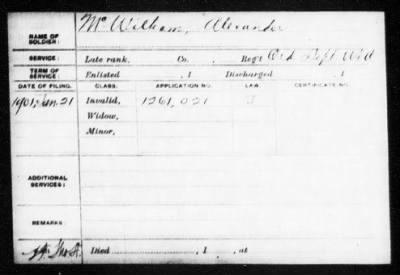 NAME OF SOLDIER: McWilliam, Alexander
SERVICE: Late rank, Co. , Reg't Ord Dept USA
TERM OF SERVICE: Enlisted , 1 Discharged , 1
DATE OF FILING. CLASS. APPLICATION NO. LAW. CERTIFICATE NO.
1901, Jan. 21 Invalid, 1261,021
Widow,
Minor,
ADDITIONAL SERVICES:
REMARKS:
Died , 1 , at